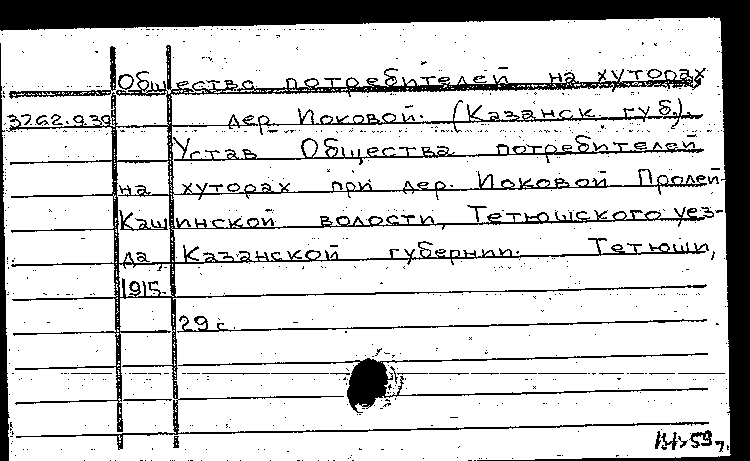 Общество потребителей на хуторах
дер. Иоковой. (Казанск губ.).
Устав Общества потребителей
на хуторах при дер. Иоковой Пролей-
Кашинской волости, Тетюшского уез-
да, Казанской губернии. Тетюши,
1915.
29 с